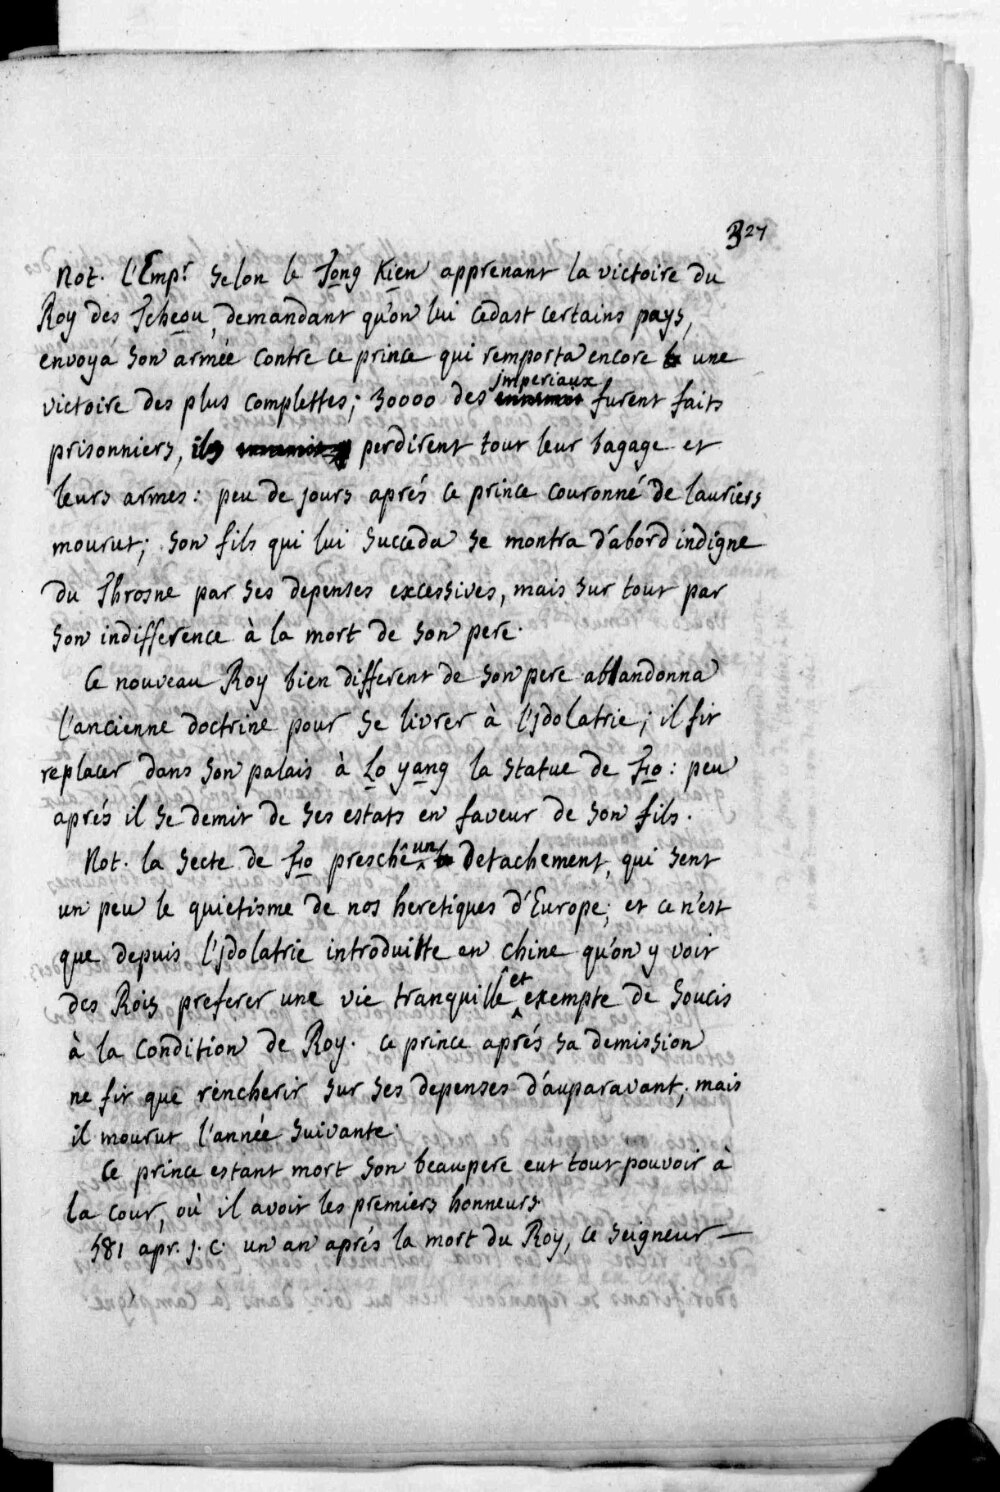 327
Not. l'Empr selon le Tong Kien apprenant la victoire du
Roy des Tcheou, demandant qu'on lui cedast certains pays,
envoya son armée contre ce prince qui remporta encore une
victoire des plus complettes; 30000 des imperiaux furent faits
prisonniers, ils perdirent tout leur bagage et
leurs armes: peu de jours aprés ce prince couronné de lauriers
mourut; son fils qui lui succeda se montra d'abord indigne
du Throsne par ses depenses excessives, mais sur tout par
son indifference à la mort de son pere.
Ce nouveau Roy bien different de son pere abbandonna
l'ancienne doctrine pour se livrer à l'jdolatrie; il fit
replacer dans son palais à Lo yang la statue de Fo: peu
aprés il se demit de ses estats en faveur de son fils.
Not. la secte de Fo presche un detachement, qui sent
un peu le quietisme de nos heretiques d'Europe; et ce n'est
que depuis l'jdolatrie introduitte en chine qu'on y voit
des Rois preferer une vie tranquille et exempte de soucis
à la condition de Roy. ce prince aprés sa demission
ne fit que rencherir sur ses depenses d'auparavant; mais
il mourut l'année suivante.
Ce prince estant mort son beaupere eut tout pouvoir à
la cour, où il avoit les premiers honneurs.
581 apr. j. c. un an aprés la mort du Roy, ce seigneur —